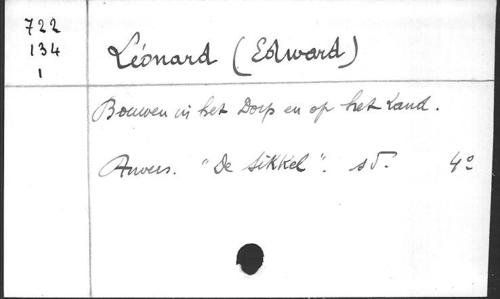 722
134
1
Léonard (Edward)
Bouwen in het Dorp en op het Land.
Anvers. "De Sikkel". sd. 4°